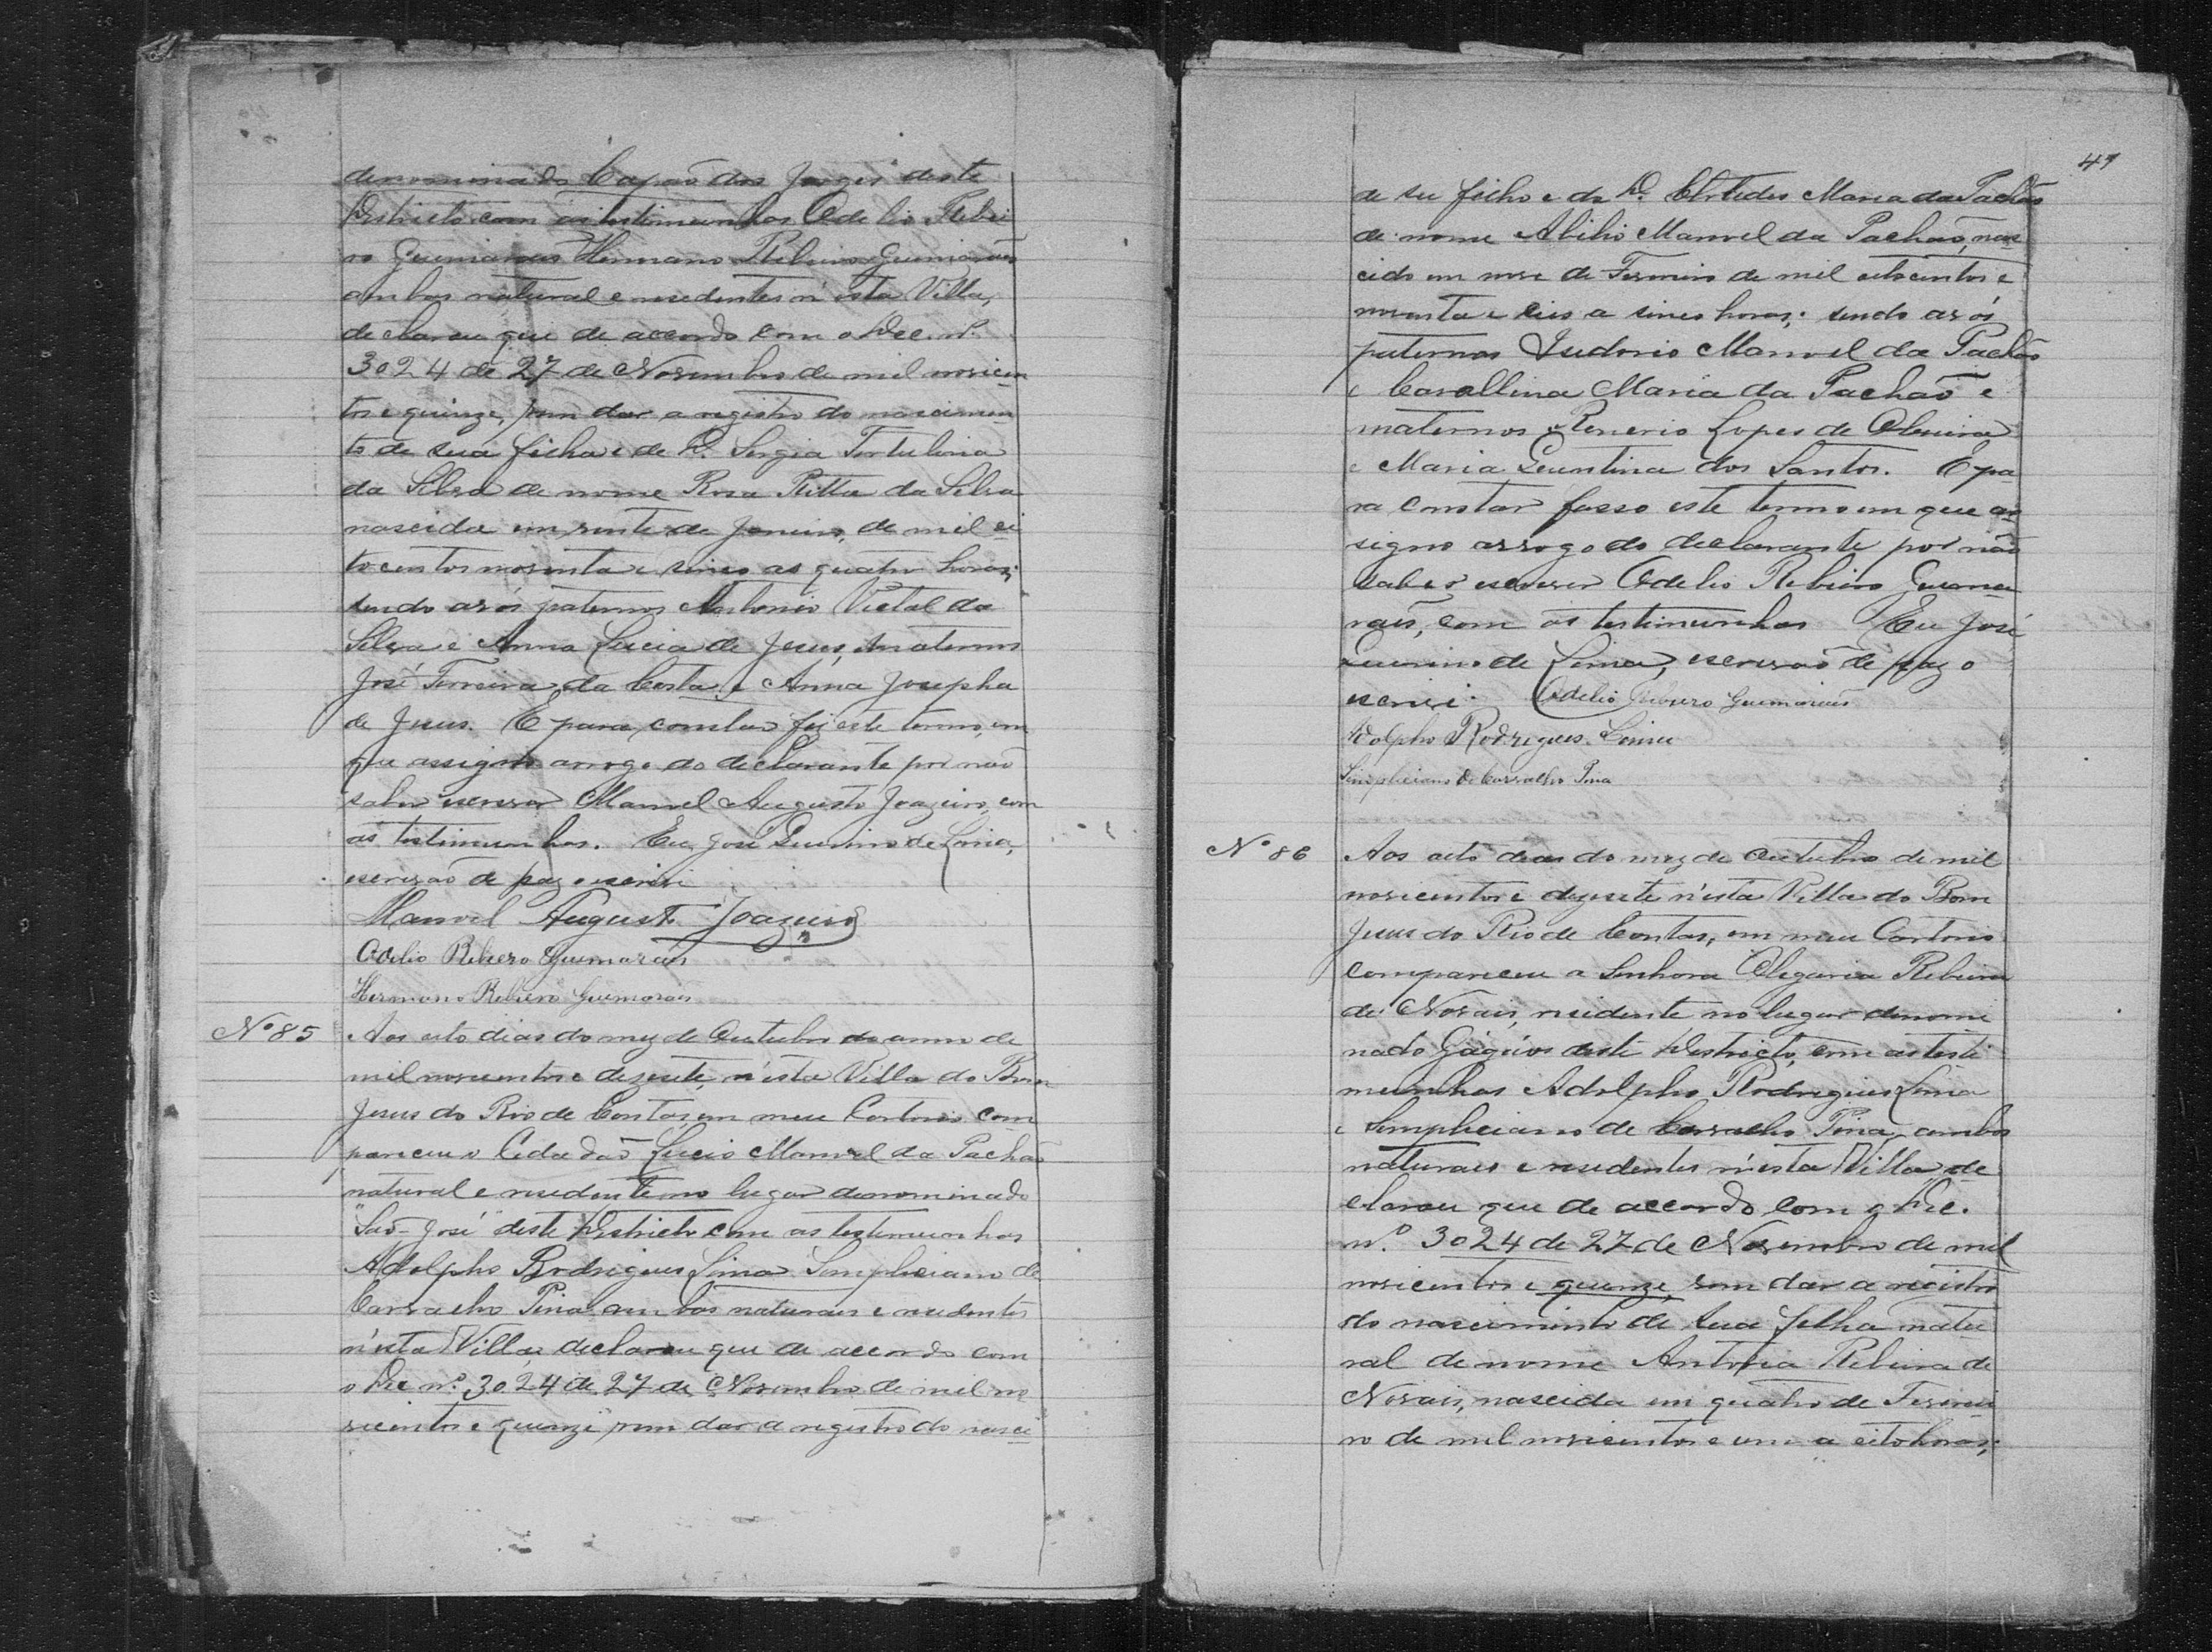 denominado Capão dos Jorges deste
Districto com as testimunhas Odelio Ribei
ro Guimarães Hermano Ribeiro Guimarães
ambos natural e residentes n'esta Villa,
declarou que de accordo com o Dec. nº.
3024 de 27 de Novembro de mil novicen
tos e quinze, vem dar a registro do nascimen
to de sua filha e de D. Sergia Tertulina
da Silva de nome Rosa Ritta da Silva
nascida em vinte de Janeiro, de mil oi
tocentos noventa e sinco as quatro horas;
sendo avós paternos Antonio Victal da
Silva e Anna Lucia de Jesus, maternos
José Ferreira da Costa e Anna Josepha
de Jesus. E para constar fiz este termo, em
que assigna arrogo do declarante por não
saber escrever Manoel Augusto Joazeiro, com
as testimunhas. Eu, José Quirino de Lima,
escrivão de paz o escrivi
Manoel Augusto Joazeiro
Odelio Ribeiro Guimarães
Hermano Ribeiro Guimarães
Nº 85 Aos oito dias do mez de Outubro do anno de
mil novicentos e dezesete, n'esta Villa do Bom
Jesus do Rio de Contas, em meu Cartorio com
pareceu o Cidadão Lucio Manoel da Pachão
natural e residente no lugar denominado
"São-José" deste Districto com as testimunhas
Adolpho Rodrigues Lima Simpliciano de
Carvalho Pina ambos naturais e residentes
n'esta Villa, declarou que de accordo com
o Dec nº. 3024 de 27 de Novembro de mil no
vicentos e quinze vem dar a registro do nasci
41
de seu filho e de D. Maria da Pachão
de nome Abilio Manoel da Pachão, nas
cido em nove de Fevereiro de mil oitocentos e
noventa e seis a sinco horas; sendo avós
paternos Izidorio Manoel da Pachão
e Carollina Maria da Pachão e
maternos Renerio Lopes de Oliveira
e Maria Leuntina dos Santos. E pa
ra constar fasso este termo em que as
signa arrogo do declarante por não
saber escrever Odelio Ribeiro Guima
rães, com as testimunhas Eu José
Quirino de Lima, escrivão de paz o
escrivi. Odelio Ribeiro Guimarães
Adolpho Rodrigues Lima
Simpliciano de Carvalho Pina
Nº 86 Aos oito dias do mez de Outubro de mil
novicentos e dezesete n'esta Villa do Bom
Jesus do Rio de Contas, em meu Cartorio
compareceu a Senhora Olegaria Ribeira
de Novais, residente no lugar denomi
nado deste Districto, com as testi
munhas Adolpho Rodrigues Lima
e Simpliciano de Carvalho Pina, ambos
naturais e residentes n'esta Villa de
clarou que de accordo com o Dec.
nº. 3024 de 27 de Novembro de mil
novicentos e quinze, vem dar a registro
do nascimento de sua filha natu
ral de nome Antonia Ribeira de
Novais, nascida em quatro de Feverei
ro de mil novicentos e um a oito horas;